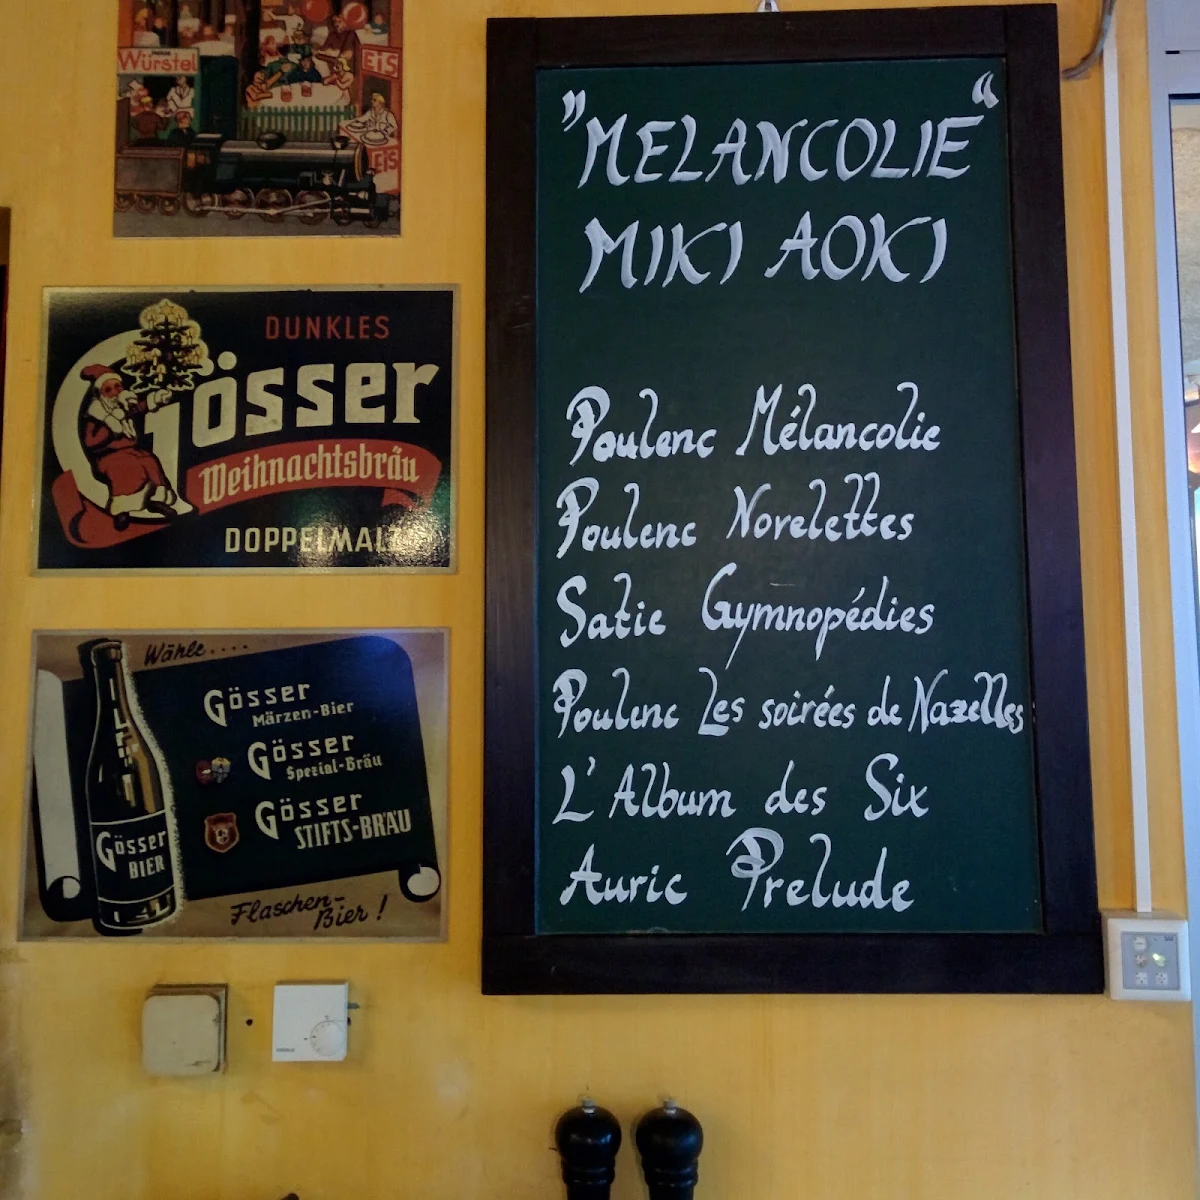 Würstel
EiS
EiS
DUNKLES
Gösser
Weihnachtsbräu
DOPPELMALZ
Wähle....
Gösser
Märzen-Bier
Gösser
Spezial-Bräu
Gösser
STIFTS-BRÄU
Gösser
BIER
Flaschen-
Bier !
"MELANCOLIE"
MIKI AOKI
Poulenc Mélancolie
Poulenc Novelettes
Satie Gymnopédies
Poulenc Les soirées de Nazelles
L'Album des Six
Auric Prelude